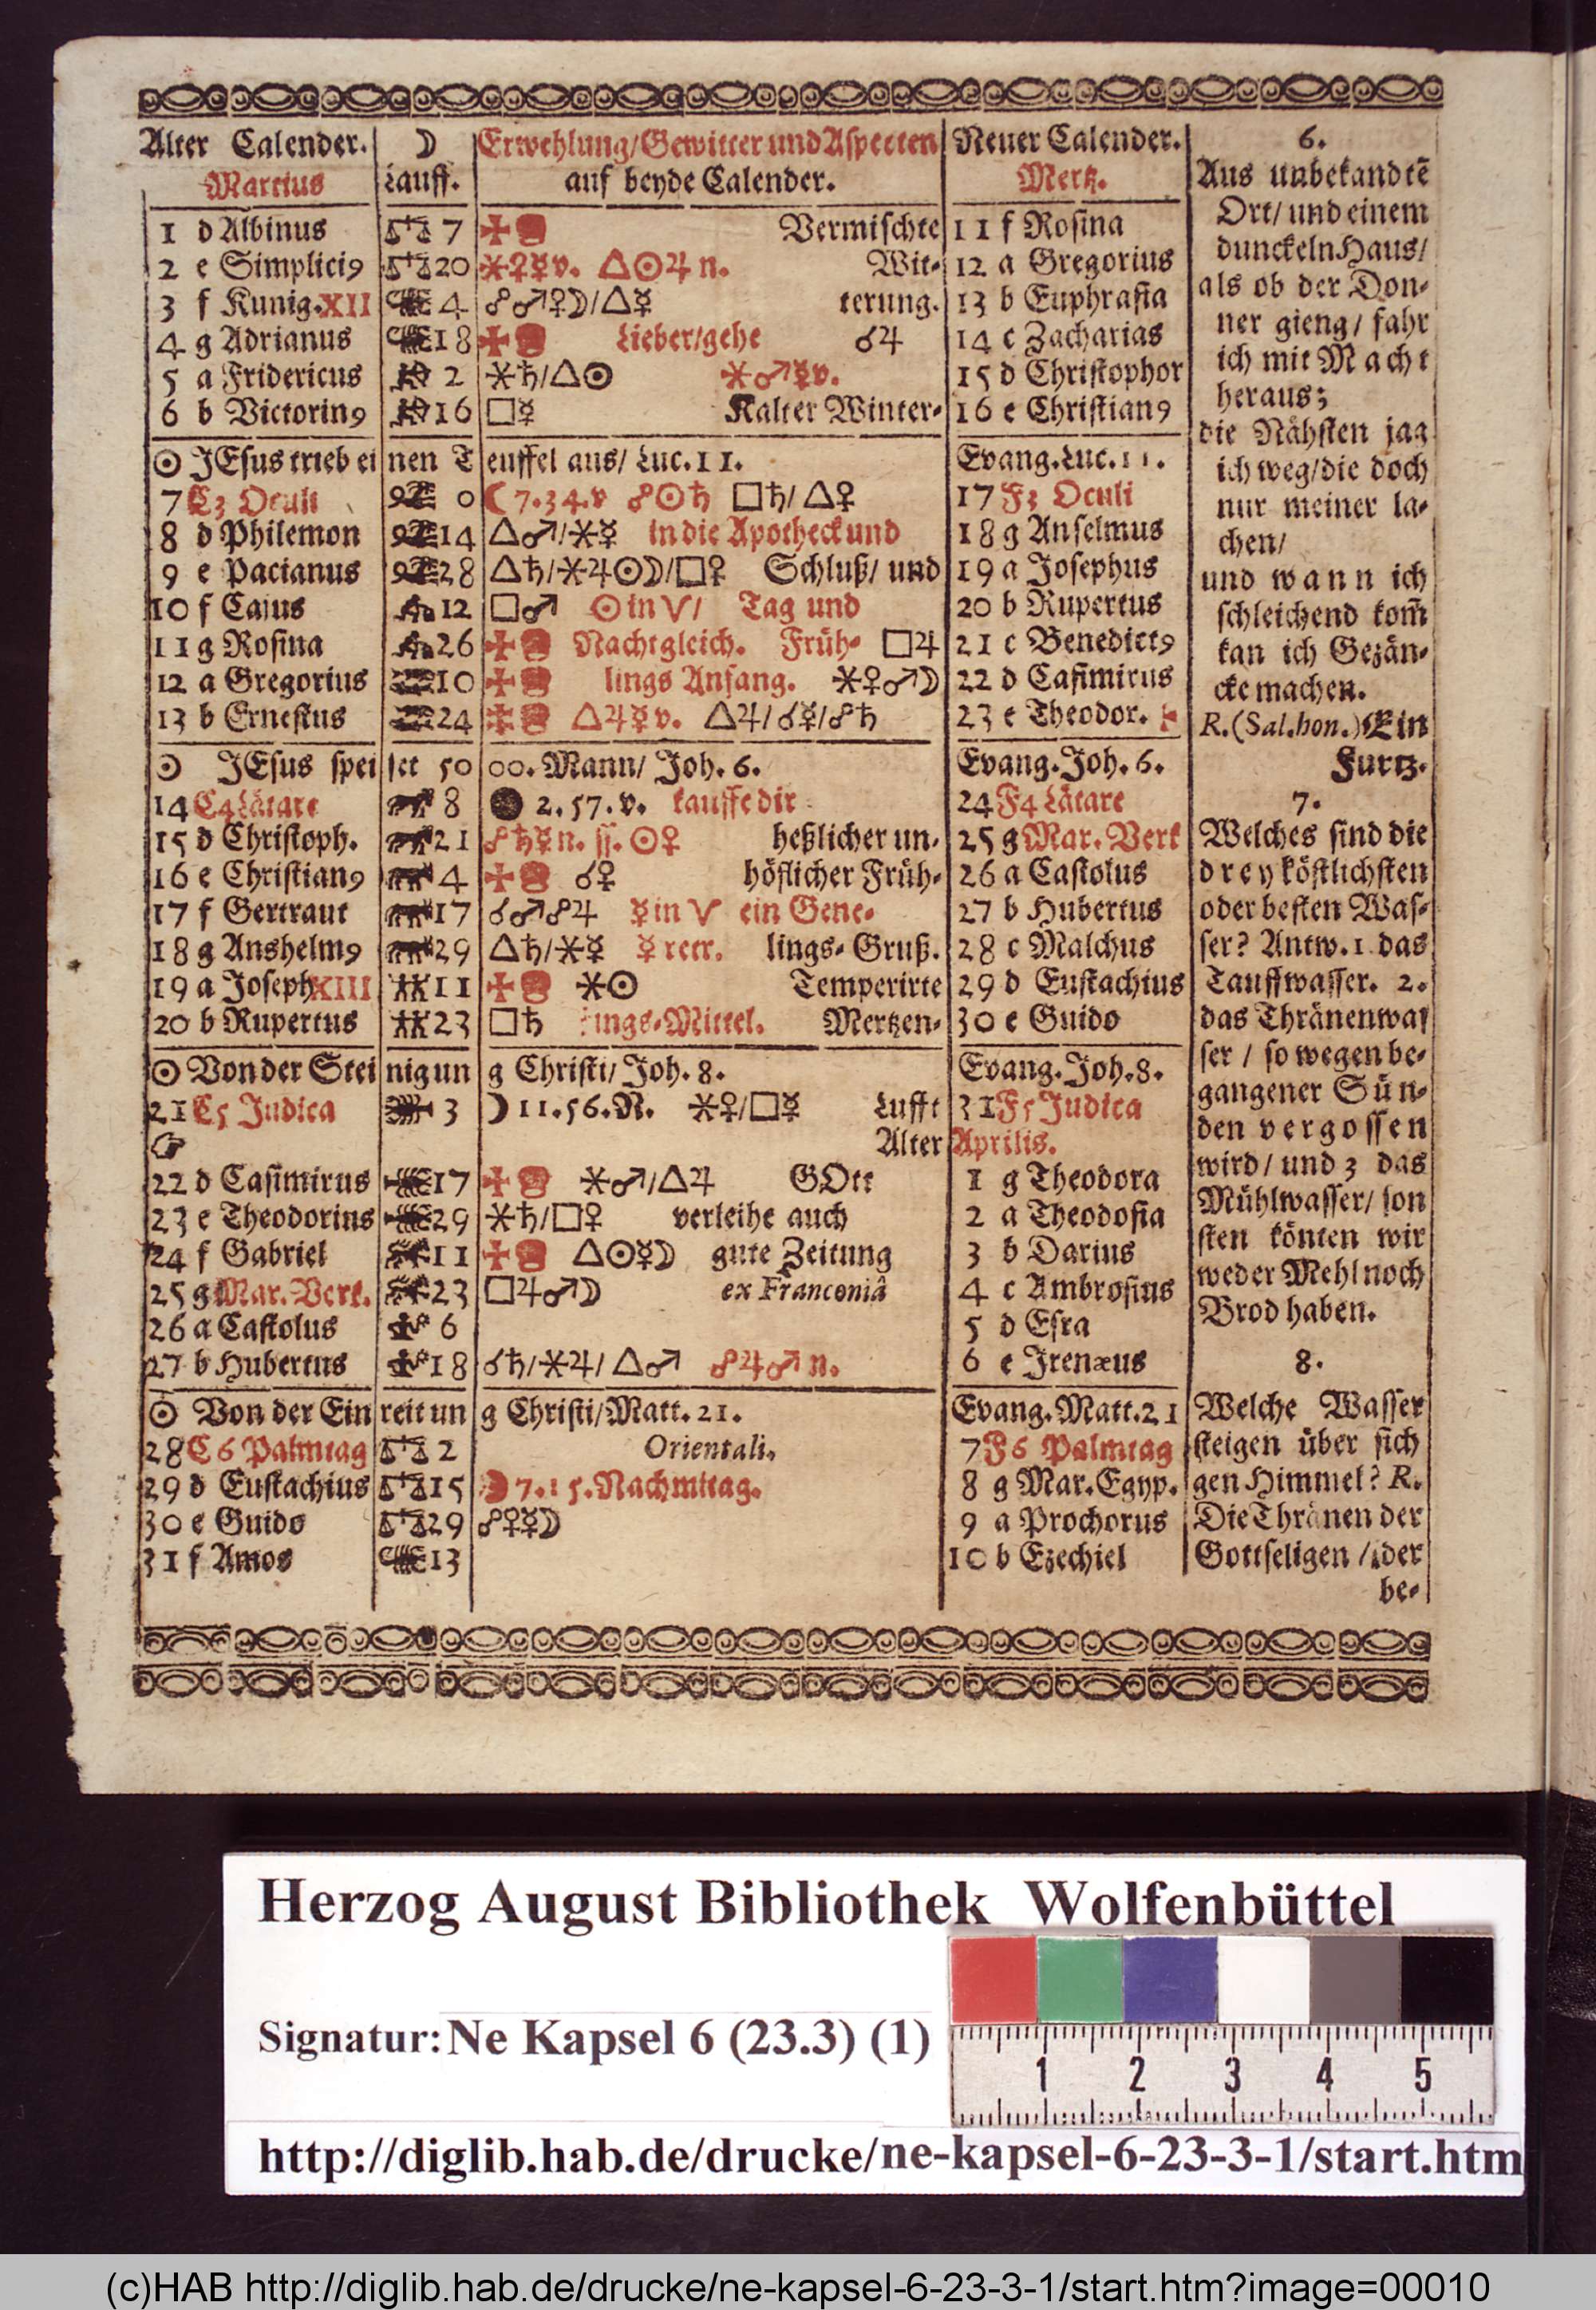 Alter Calender. ☽ Erwehlung/Gewitter und Aspecten Neuer Calender.
Martius Lauff. auf beyde Calender. Mertz.
1 d Albinus ♎ 7 Vermischte 11 f Rosina
2 e Simplici9 ♎ 20 ⚹♀☿v. △☉♃n. Wit- 12 a Gregorius
3 f Kunig. XII ♏ 4 ☍♂♀☽/△☿ terung. 13 b Euphrasia
4 g Adrianus ♏ 18 Lieber/gehe ☌♃ 14 c Zacharias
5 a Fridericus 2 ⚹♄/△☉ ⚹♂☿v. 15 d Christophor
6 b Victorin9 16 □☿ Kalter Winter- 16 e Christian9
☉ JEsus trieb einen Teuffel aus/ Luc. 11. Evang. Luc. 11.
7 C3 Oculi 0 ☾ 7. 34. v ☍☉♄ □♄/△♀ 17 F3 Oculi
8 d Philemon 14 △♂/⚹☿ in die Apotheck und 18 g Anselmus
9 e Pacianus 28 △♄/⚹♃☉☽/□♀ Schluß/ und 19 a Josephus
10 f Cajus 12 □♂ ☉ in ♈/ Tag und 20 b Rupertus
11 g Rosina 26 Nachtgleich. Früh- □♃ 21 c Benedict9
12 a Gregorius 10 lings Anfang. ⚹♀♂☽ 22 d Casimirus
13 b Ernestus 24 △♃☿v. △♃/☌☿/☍♄ 23 e Theodor.
☉ JEsus speiset 5000. Mann/ Joh. 6. Evang. Joh. 6.
14 C4 Lätare 8 ● 2. 57. v. kauffe dir 24 F4 Lätare
15 d Christoph. 21 ☍♄☿n. ſſ. ☉♀ heßlicher un- 25 g Mar. Verk
16 e Christian9 4 ☌♀ höflicher Früh- 26 a Castolus
17 f Gertraut 17 ☌♂☍♃ ☿ in ♈ ein Gene- 27 b Hubertus
18 g Anshelm9 29 △♄/⚹☿ ☿ retr. lings- Gruß. 28 c Malchus
19 a Joseph XIII 11 ⚹☉ Temperirte 29 d Eustachius
20 b Rupertus 23 □♄ ings-Mittel. Mertzen- 30 e Guido
☉ Von der Steinigung Christi/ Joh. 8. Evang. Joh. 8.
21 C5 Judica 3 ☽ 11. 56. N. ⚹♀/□☿ Lufft 31 F5 Judica
☞ Alter Aprilis.
22 d Casimirus 17 ⚹♂/△♃ GOtt 1 g Theodora
23 e Theodorius 29 ⚹♄/□♀ verleihe auch 2 a Theodosia
24 f Gabriel 11 △☉☿☽ gute Zeitung 3 b Darius
25 g Mar. Verk. 23 □♃♂☽ ex Franconiâ 4 c Ambrosius
26 a Castolus 6 5 d Esra
27 b Hubertus 18 ☌♄/⚹♃/△♂ ☍♃♂n. 6 e Irenæus
☉ Von der Einreitung Christi/ Matt. 21. Evang. Matt. 21
28 C6 Palmtag ♎ 2 Orientali. 7 F6 Palmtag
29 d Eustachius ♎ 15 7. 15. Nachmitag. 8 g Mar. Egyp.
30 e Guido ♎ 29 ☍♀☿☽ 9 a Prochorus
31 f Amos ♏ 13 10 b Ezechiel
6.
Aus unbekandtē
Ort/ und einem
dunckeln Haus/
als ob der Don-
ner gieng/ fahr
ich mit Macht
heraus;
die Nähsten jag
ich weg/die doch
nur meiner la-
chen/
und wann ich
schleichend kom̃
kan ich Gezän-
cke machen.
R. (Sal. hon.) Ein
Furtz.
7.
Welches sind die
drey köstlichsten
oder besten Was-
ser? Antw. 1. das
Tauffwasser. 2.
das Thränenwas
ser / so wegen be-
gangener Sün-
den vergossen
wird/ und 3 das
Mühlwasser/ son
sten könten wir
weder Mehl noch
Brod haben.
8.
Welche Wasser
steigen über sich
gen Himmel? R.
Die Thränen der
Gottseligen / der
be-
Herzog August Bibliothek Wolfenbüttel
Signatur: Ne Kapsel 6 (23.3) (1)
1 2 3 4 5
http://diglib.hab.de/drucke/ne-kapsel-6-23-3-1/start.htm
(c)HAB http://diglib.hab.de/drucke/ne-kapsel-6-23-3-1/start.htm?image=00010